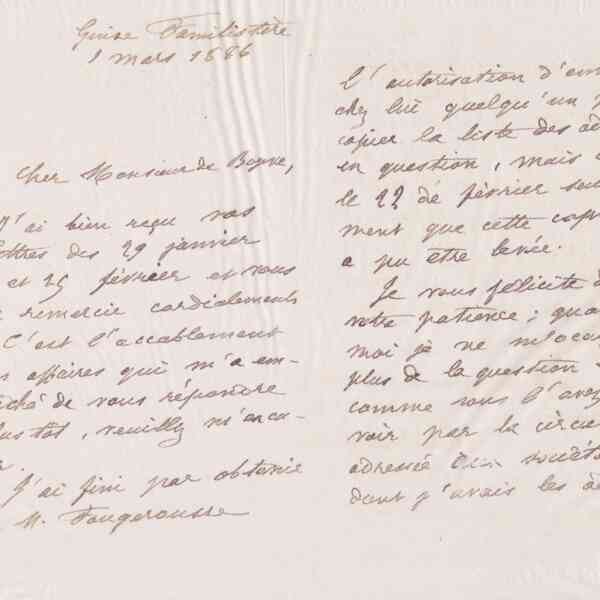 Guise Familistère
1 mars 1886
Cher Monsieur de Boyve,
J'ai bien reçu vos
lettres des 29 janvier
et 25 février et vous
remercie cordialement
C'est l'accablement
affaires qui m'a em-
pêché de vous répondre
plus tôt, veuillez m'excu-
J'ai fini par obtenir
M. Fougerousse
l'autorisation d'en
chez lui quelqu'un
copier la liste des
en question, mais
le 22 de février
ment que cette
a pu être
Je vous félicite
votre patience; quant
moi je ne
plus de la question
comme vous l'avez
voir par la circu
adressée aux sociétés
dont j'avais les